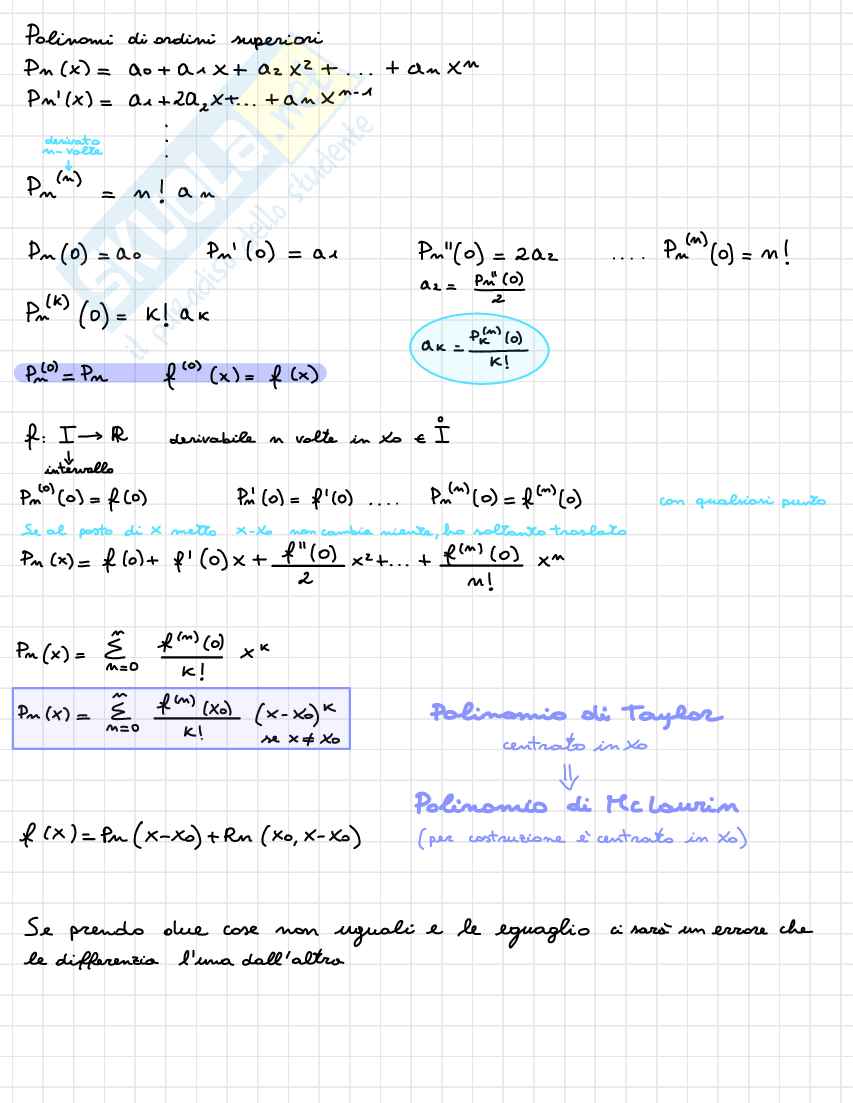 Polinomi di ordini superiori
Pn(x) = a0 + a1x + a2x² + ... + anxⁿ
Pn'(x) = a1 + 2a2x + ... + anxⁿ⁻¹
⋮
derivato
n-volte
↓
Pn⁽ⁿ⁾ = n! an
Pn(0) = a0    Pn'(0) = a1    Pn''(0) = 2a2    .... Pn⁽ⁿ⁾(0) = n!
a2 = Pn''(0)/2
Pn⁽ᵏ⁾(0) = k! ak
ak = Pk⁽ⁿ⁾(0)/k!
Pn⁽⁰⁾ = Pn    f⁽⁰⁾(x) = f(x)
f: I → ℝ    derivabile n volte in x0 ∈ I̊
↓
intervallo
Pn⁽⁰⁾(0) = f(0)    Pn'(0) = f'(0) ....    Pn⁽ⁿ⁾(0) = f⁽ⁿ⁾(0)    con qualsiasi punto
Se al posto di x metto x-x0 non cambia niente, ho soltanto traslato
Pn(x) = f(0) + f'(0)x + f''(0)/2 x² + ... + f⁽ⁿ⁾(0)/n! xⁿ
Pn(x) = Σⁿn=0 f⁽ⁿ⁾(0)/k! xᵏ
Pn(x) = Σⁿn=0 f⁽ⁿ⁾(x0)/k! (x-x0)ᵏ
se x ≠ x0
Polinomio di Taylor
centrato in x0
⇓
Polinomio di McLaurin
(per costruzione è centrato in x0)
f(x) = Pn(x-x0) + Rn(x0, x-x0)
Se prendo due cose non uguali e le eguaglio ci sarà un errore che
le differenzia l'una dall'altra
SKUOLA.net
il paradiso dello studente